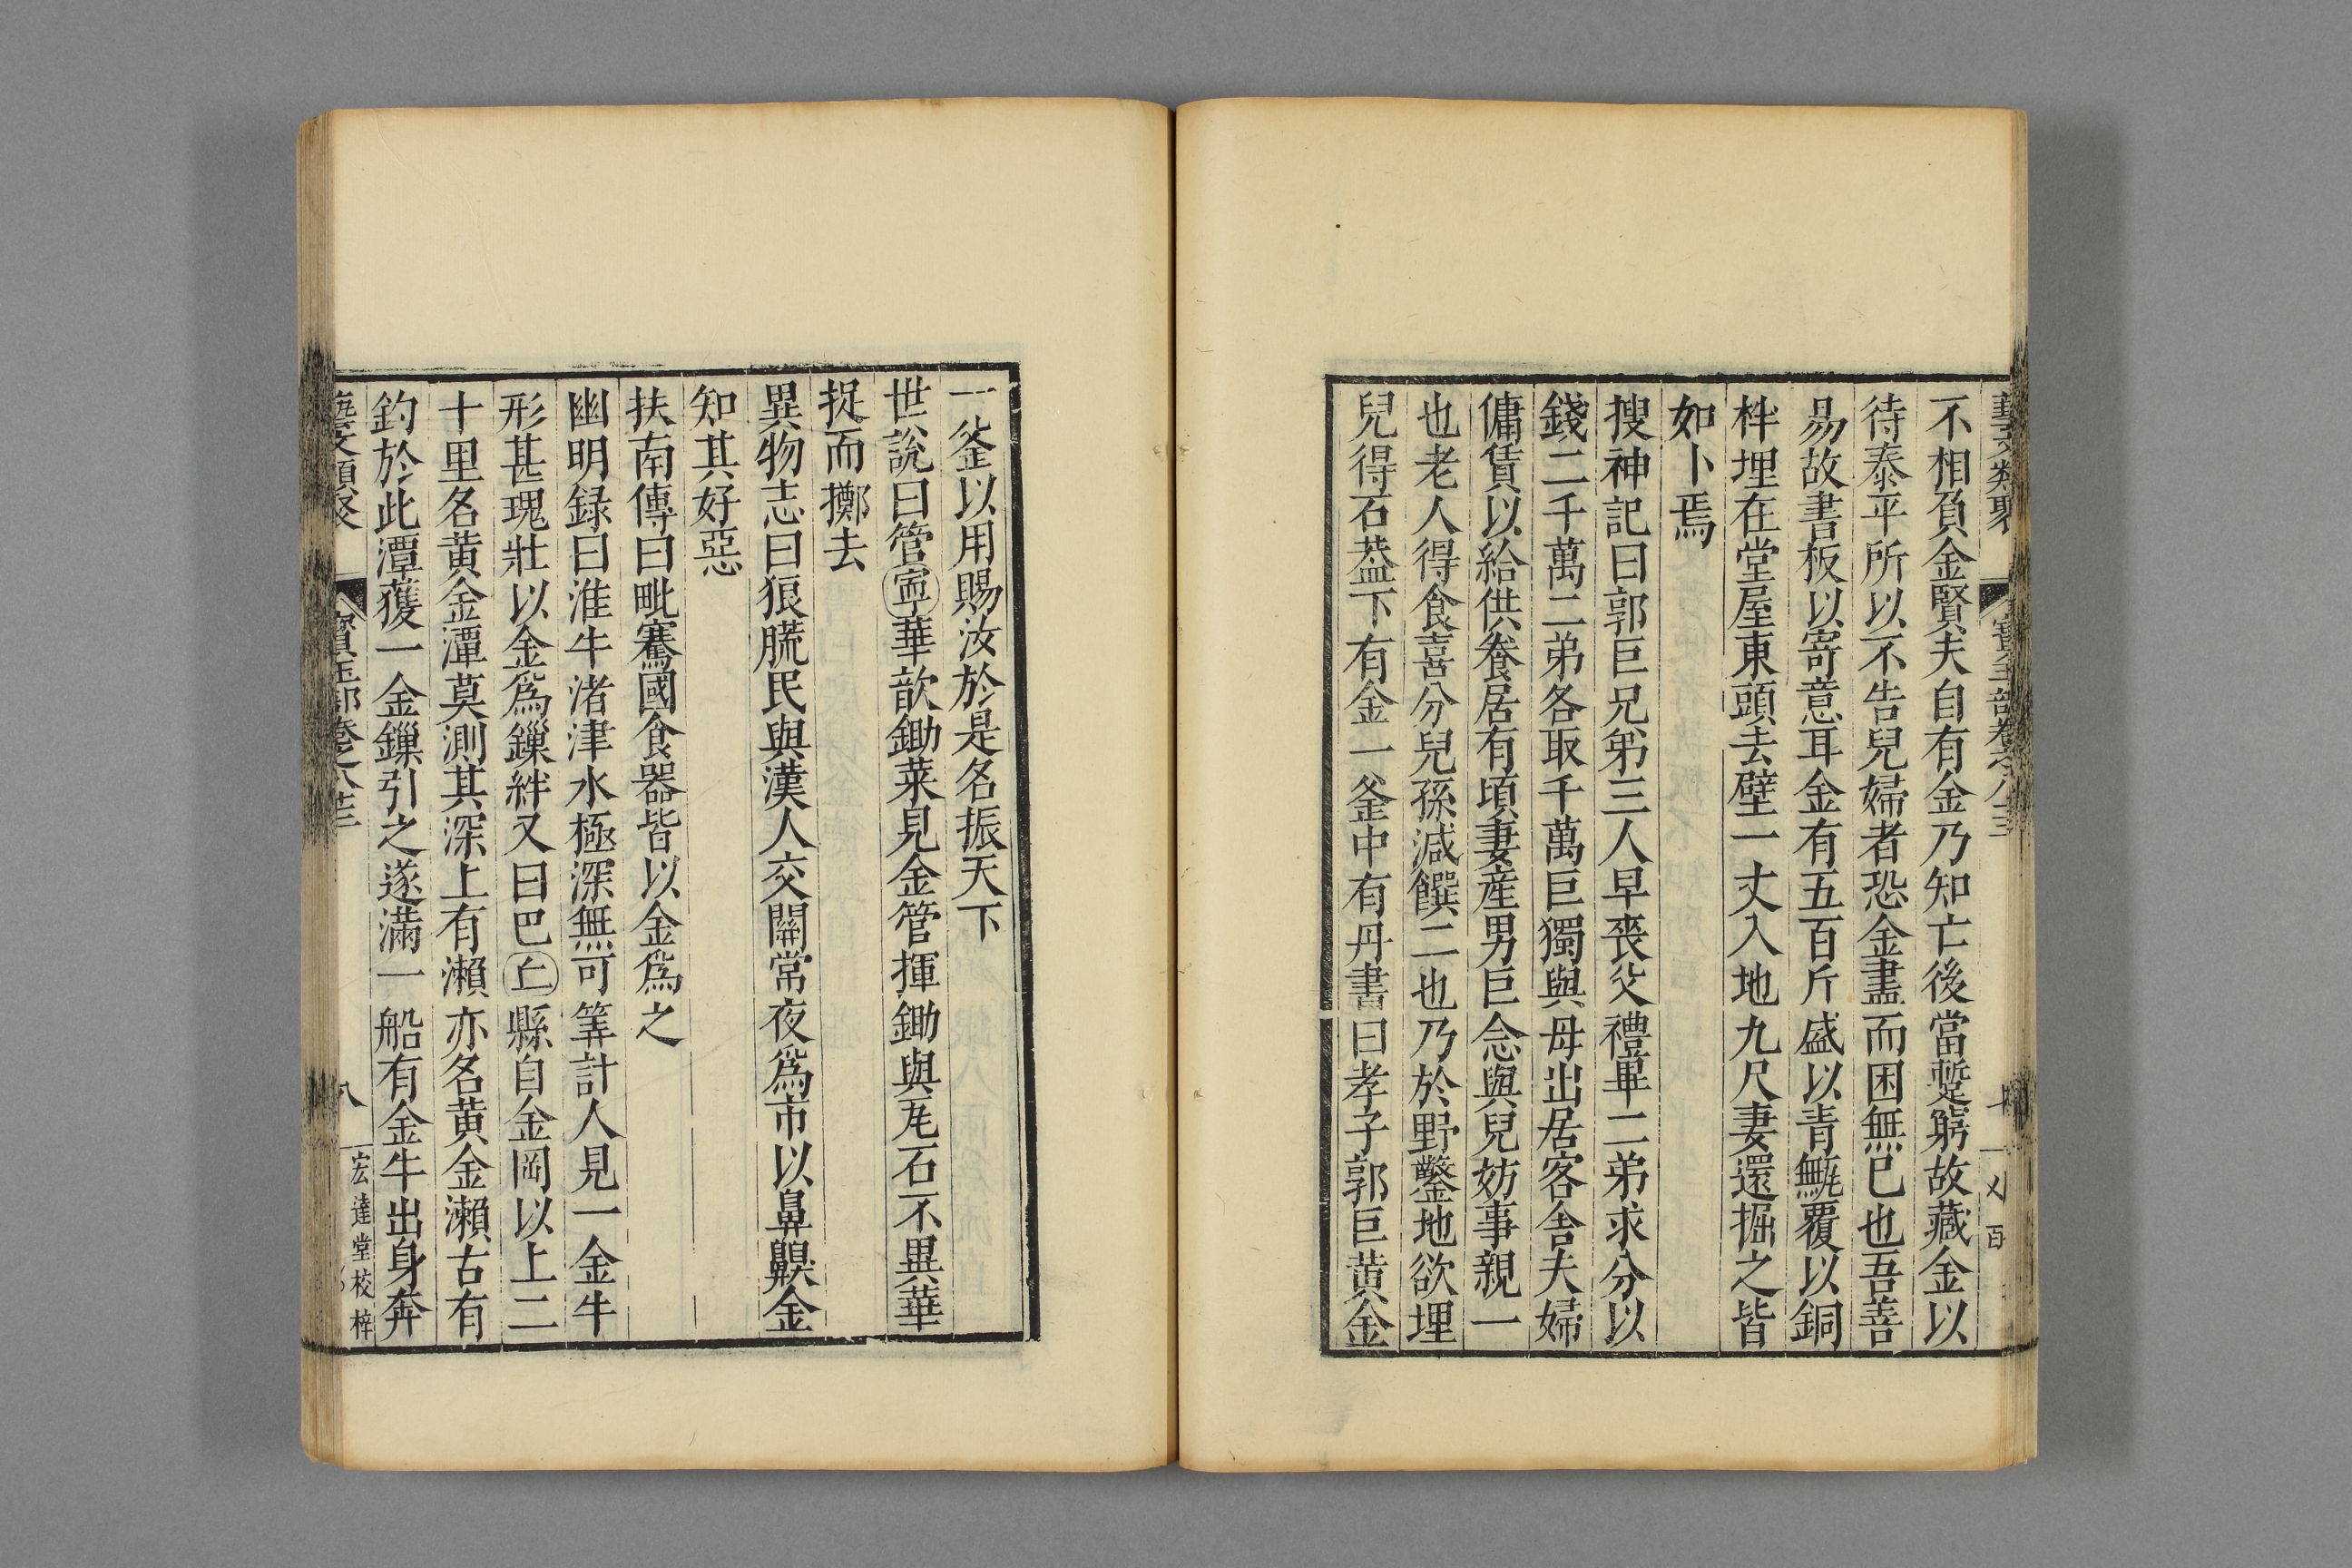 藝文類聚 寳玉部卷之八十三
不相負金賢夫自有金乃知亡後當蹔窮故藏金以
待泰平所以不告兒婦者恐金盡而困無已也吾善
易故書板以寄意耳金有五百斤盛以青甒覆以銅
柈埋在堂屋東頭去壁一丈入地九尺妻還掘之皆
如卜焉
搜神記曰郭巨兄弟三人早喪父禮畢二弟求分以
錢二千萬二弟各取千萬巨獨與母出居客舍夫婦
傭賃以給供養居有頃妻産男巨念與兒妨事親一
也老人得食喜分兒孫減饌二也乃於野鑿地欲埋
兒得石葢下有金一釜中有丹書曰孝子郭巨黄金
一釜以用賜汝於是名振天下
世說曰管寕華歆鋤菜見金管揮鋤與瓦石不異華
捉而擲去
異物志曰狼𦡫民與漢人交關常夜爲市以鼻齅金
知其好惡
扶南傳曰毗騫國食器皆以金爲之
幽明録曰淮牛渚津水極深無可筭計人見一金牛
形甚瑰壯以金爲鏁絆又曰巴丘縣自金岡以上二
十里名黄金潭莫測其深上有瀨亦名黄金瀨古有
釣於此潭獲一金鏁引之遂滿一船有金牛出身奔
藝文類聚 寳玉部卷之八十三 八 宏達堂校梓